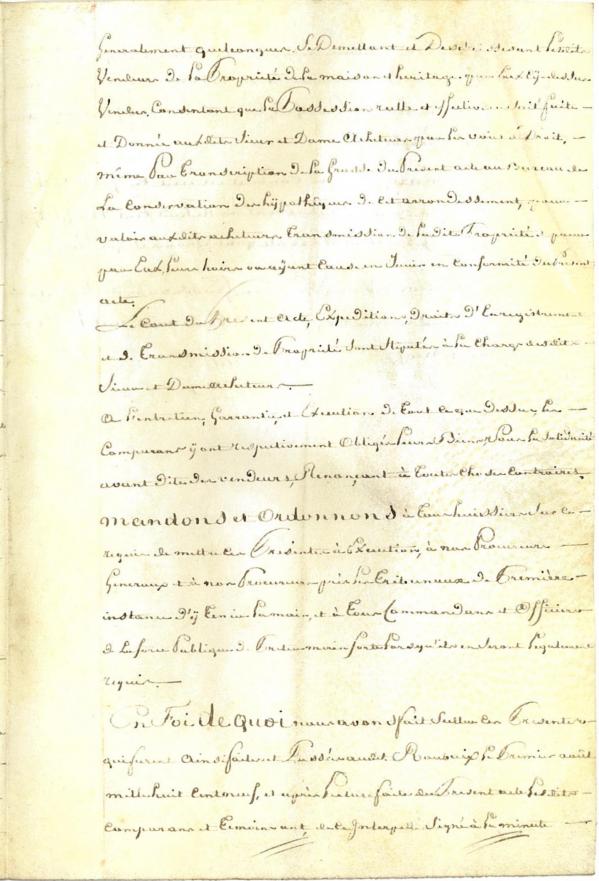 Generalement quelconques, Se Demettant et Desaisissant Lesdits
Vendeurs de La Propriété de la maison et heritage par Eux Cy dessus
Vendus, Consentant que La Possession relle et effective en soit faite
et Donnée auxdits Sieur et Dame Acheteurs par les voies de Droit, —
même Par transcription de la Grosse du Present acte au Bureau de
La Conservation des hÿpothèques de cet arrondissement, pour —
valoir auxdits acheteurs transmission de Ladite Propriété et pour
par Eux, Leurs hoirs ou aÿant Cause en Jouir en Conformité du Present
acte.
Le Cout du Present Acte, Expeditions, droits d'Enregistrement
et de transmission de Propriété sont Stipulés à La Charge desdits
Sieur et Dame acheteurs. —
A L'entretien, Garrantie, et Execution de tout ce que dessus, Les —
Comparans ÿ ont respectivement Obligés Leurs Biens sous La Solidarité
avant dite des vendeurs, Renonçant à toutes Choses Contraires.
Mandons et Ordonnons à tous huissiers sur ce
requis de mettre Ces Presentes à Execution, à nos Procureurs
Generaux et à nos Procureurs près Les tribunaux de Premiere
instance d'ÿ tenir La main, et à tous Commandans et Officiers
de La force Publique de Preter main forte Lorsqu'ils en Seront Legalement
requis. —
En Foi de Quoi nous avons fait Sceller Ces Presentes
qui furent Ainsi faites et Passées audit Roubaix Le Premier août
mil huit Cent neuf, et après Lecture faite du Present acte Lesdits
Comparans et temoins ont, de ce Interpellé Signé à La minute —